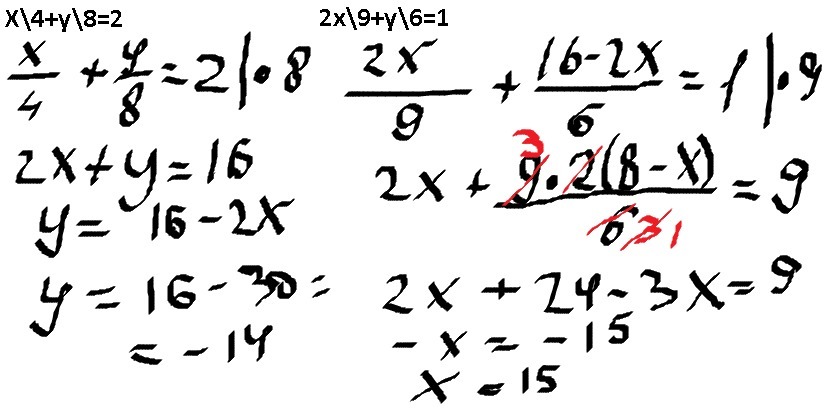 X\4+y\8=2
x/4 + y/8 = 2 |• 8
2x + y = 16
y = 16 - 2x
y = 16 - 30 =
= - 14
2x\9+y\6=1
2x/9 + 16-2x/6 = 1 |• 9
2x + 9 • 2(8 - x)/6 = 9
3
3 1
2x + 24 - 3x = 9
- x = - 15
x = 15